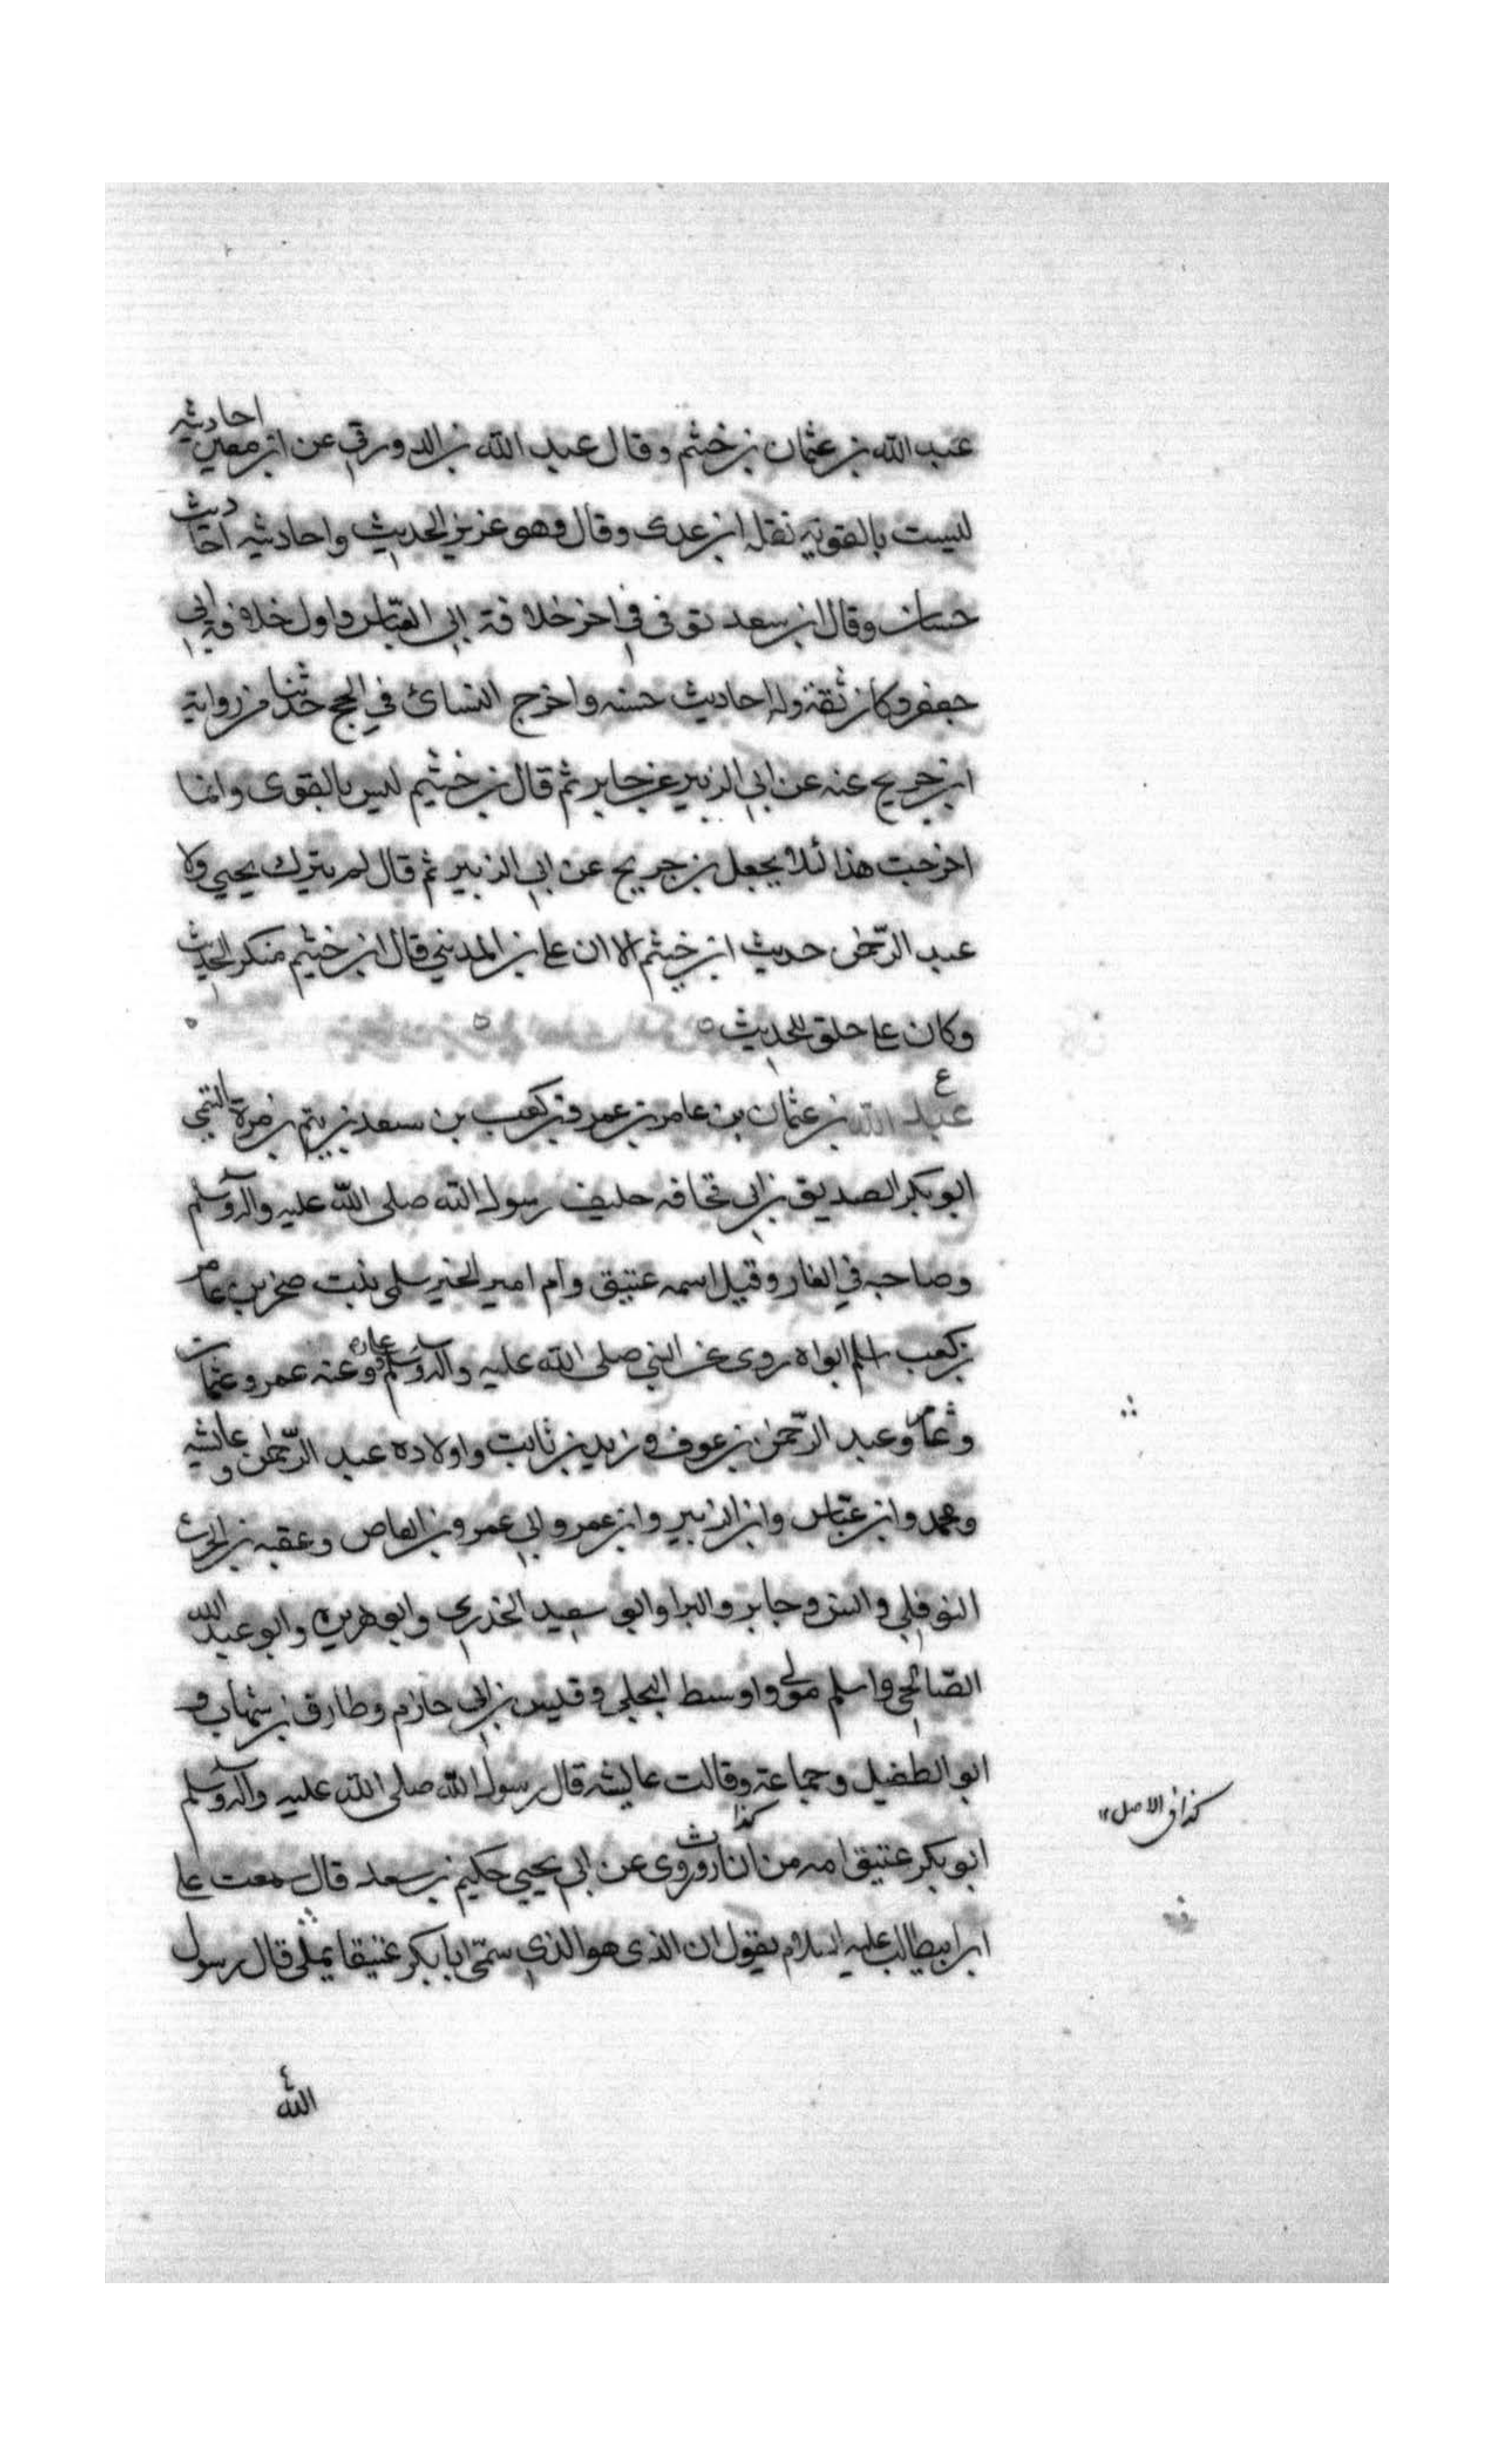 عبد الله بن عثمان بن خثيم وقال عبد الله بن الدورقي عن ابن معين احاديثه
ليست بالقوية نقله ابن عدى وقال وهو عزيز الحديث واحاديثه احاديث
حسان وقال ابن سعد توفى فى اخر خلافة ابي العباس واول خلافة ابي
جعفر وكان ثقة وله احاديث حسنه واخرج النسائ في الحج حدثنا من رواية
ابن جريج عنه عن ابي الزبير عن جابر ثم قال بن خثيم ليس بالقوى وانما
اخرجت هذا لئلا يجعل بن جريج عن ابي الزبير ثم قال لم يترك يحيى ولا
عبد الرحمن حديث ابن خيثم الا ان على بن المديني قال ابن خثيم منكر الحديث
وكان على خلق للحديث
ع
عبد الله بن عثمان بن عامر بن عمرو بن كعب بن سعد بن تيم بن مرة التيمي
ابو بكر الصديق بن ابي قحافه خليفه رسول الله صلى الله عليه واله وسلم
وصاحبه في الغار وقيل اسمه عتيق وام امير الخير سلمى بنت صخر بن عامر
بن كعب اسلم ابواه روى عن النبي صلى الله عليه واله وسلم وعنه عمر وعثمان
وعبد الرحمن بن عوف وزيد بن ثابت واولاده عبد الرحمن وعايشه
ومحمد وابن عباس وابن الزبير وابن عمر وابي عمرو بن العاص وعقبه بن الحرث
النوفلي وانس وجابر والبرا وابو سعيد الخدري وابو هريره وابو عبد الله
الصنابحي واسلم مولى واوسط البجلي وقيس بن ابي حازم وطارق بن شهاب و
ابو الطفيل وجماعة وقالت عايشه قال رسول الله صلى الله عليه واله وسلم
ابو بكر عتيق امه من النار وروى عن ابي يحيى حكيم بن سعد قال سمعت على
كذا
كذا في الاصل ١٢
ابن ابيطالب عليه السلام يقول ان الذى هو الذي سمى ابا بكر عتيقا يملى قال رسول
الله